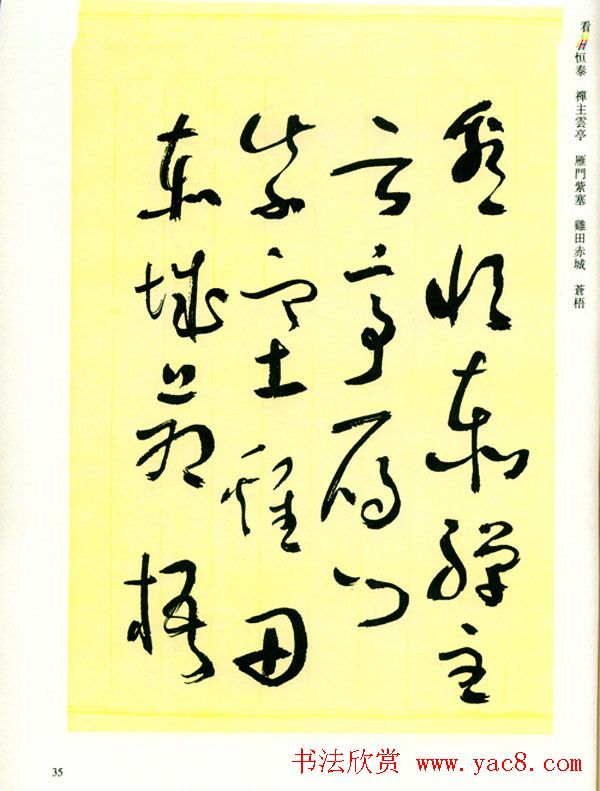 恒泰禪主
雲亭雁門
紫塞雞田
赤城蒼梧
看 恒泰 禪主雲亭 雁門紫塞 雞田赤城 蒼梧
35
书法欣赏 www.yac8.com